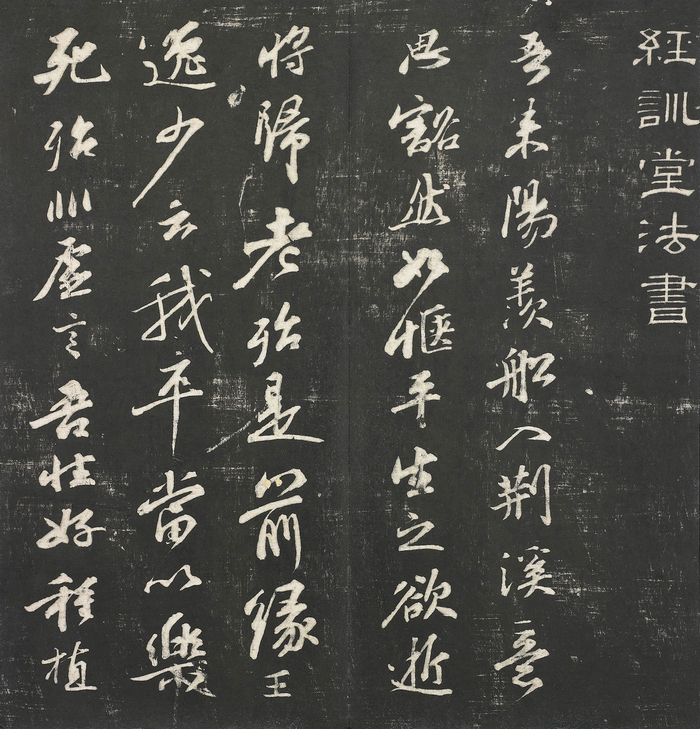 經訓堂法書
吾来陽羨船入荆溪意
思豁然如愜平生之欲逝
將歸老殆是前緣王
逸少云我卒當以樂
死殆非虛言吾性好種植